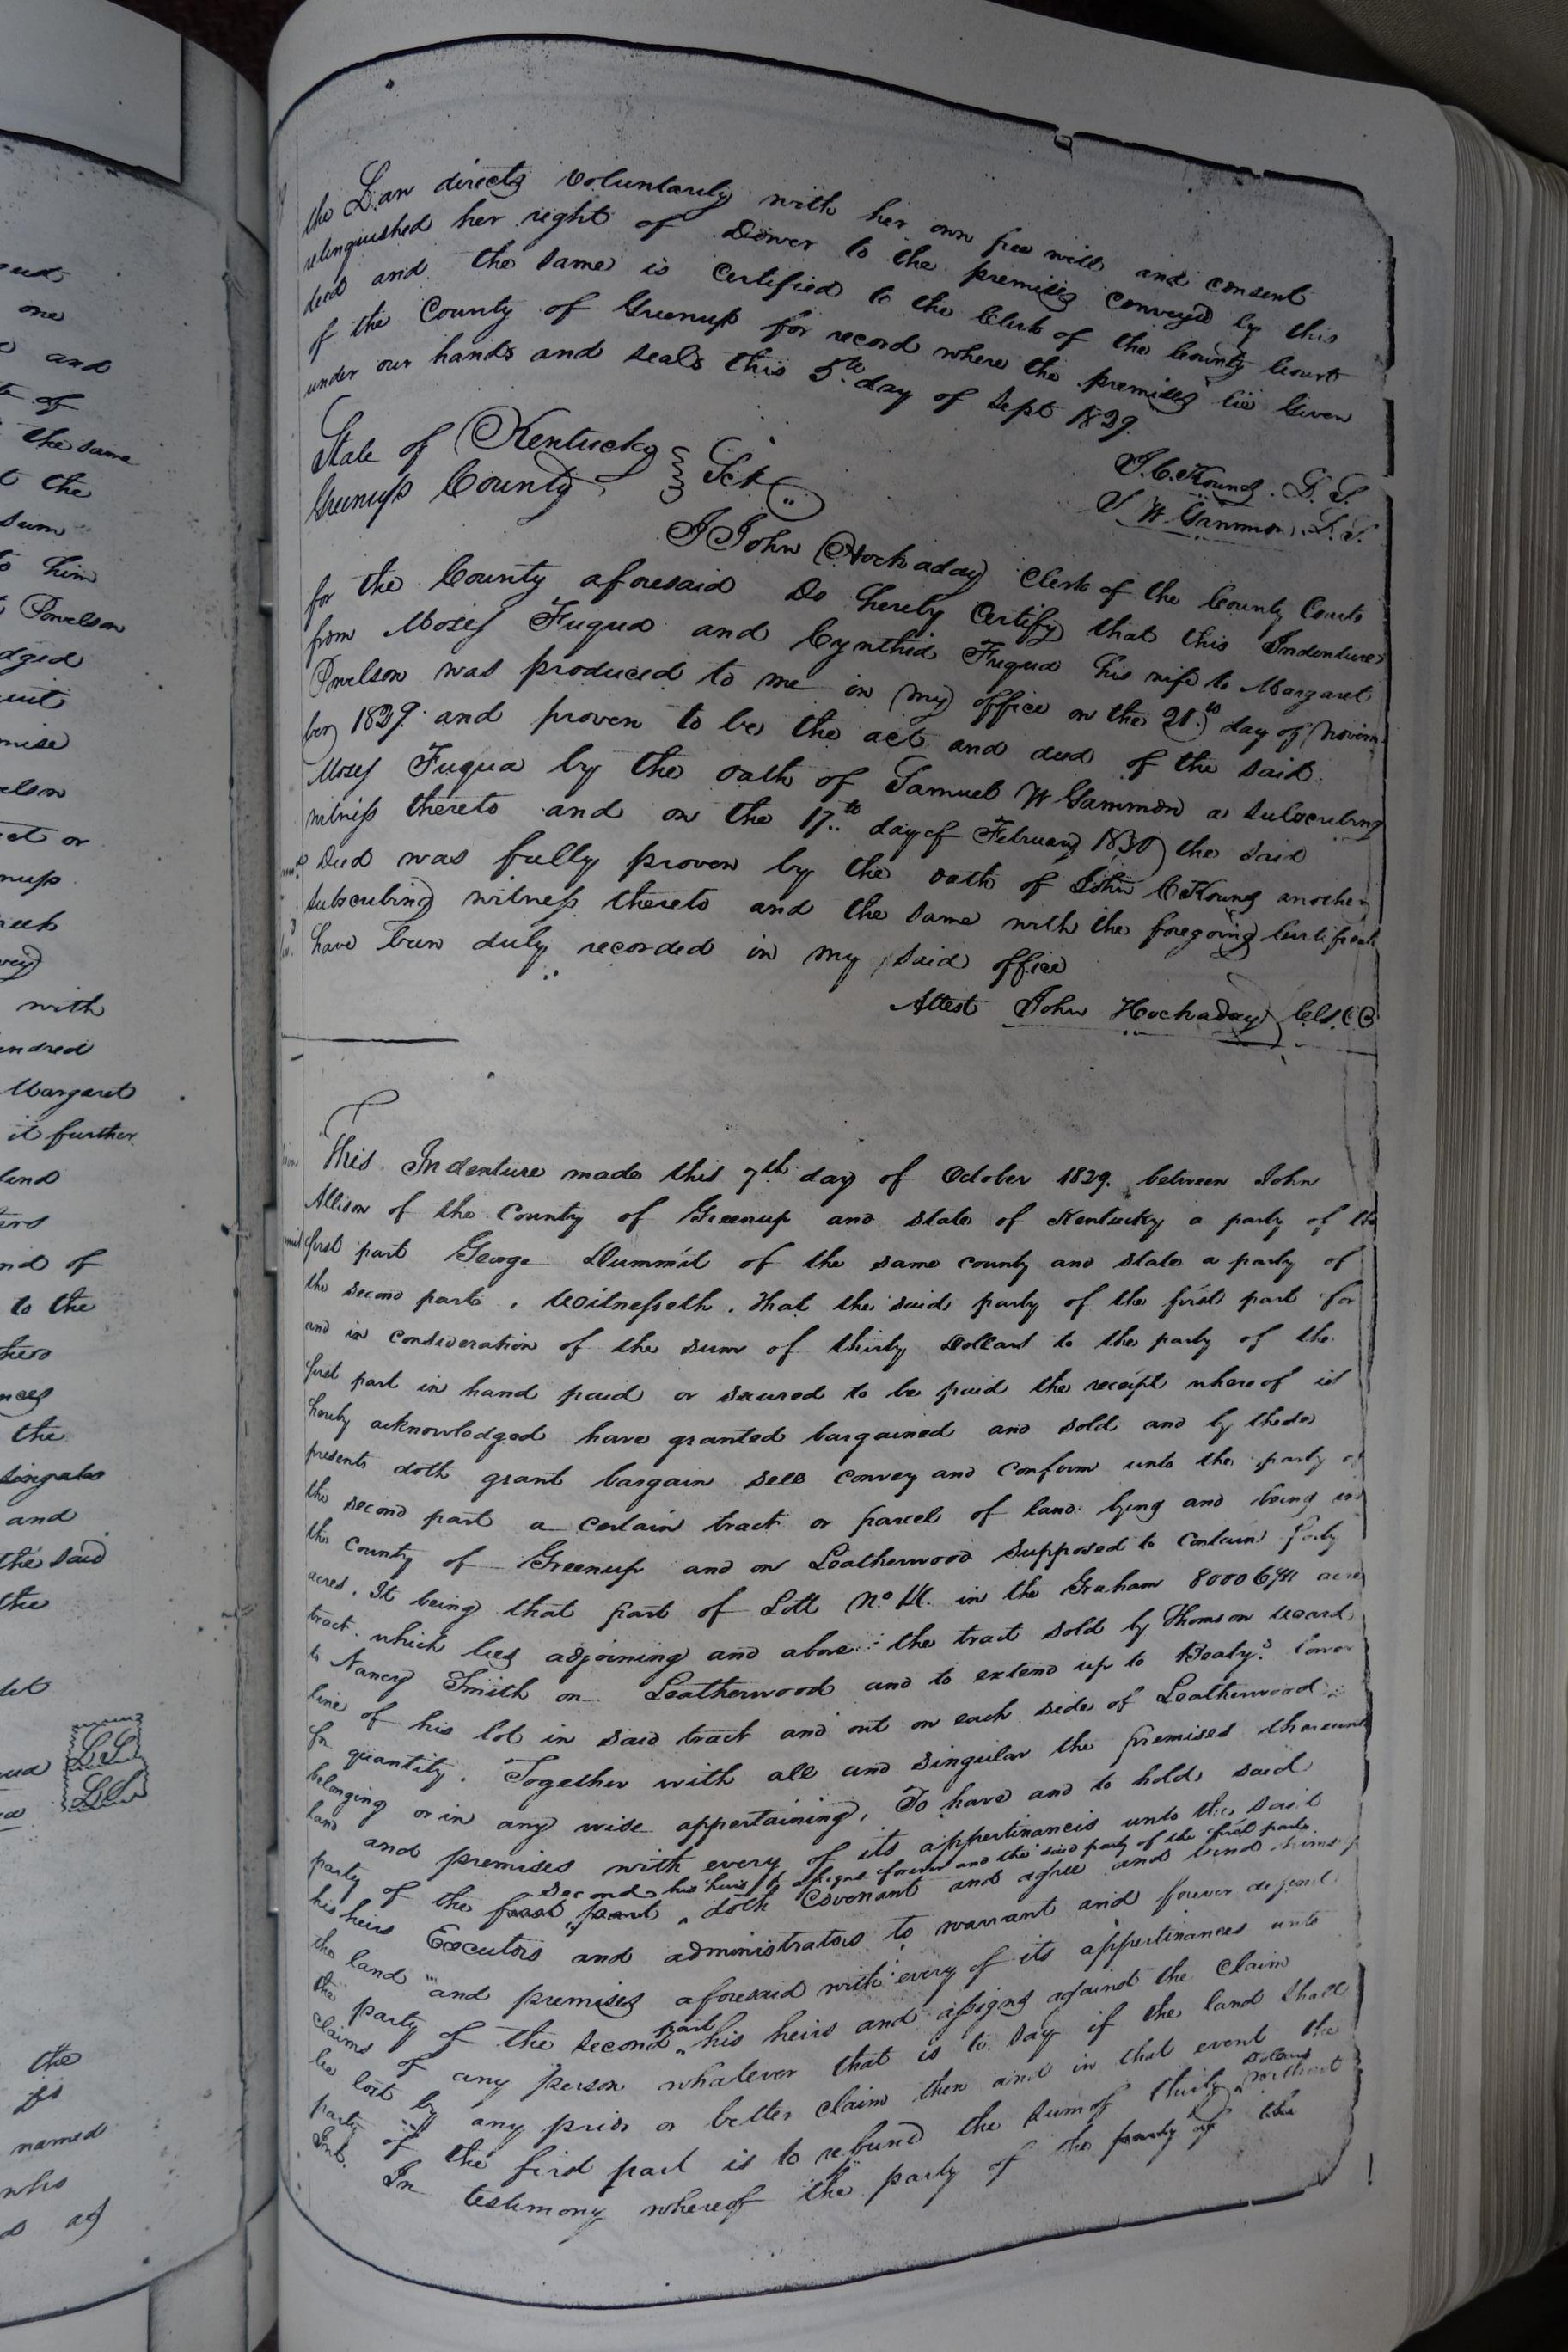 the Law directs voluntarily with her own free will and consent
relinquished her right of Dower to the premises conveyed by this
deed and the same is certified to the Clerk of the County Court
of the County of Greenup for record where the premises lie Given
under our hands and seals this 5th day of Sept 1829.
J. C. Kouns. L. S.
S W Gammon, L. S.
State of Kentucky
Greenup County Sct
I John Hockaday Clerk of the County Court
for the County aforesaid Do hereby Certify that this Indenture
from Moses Fuqua and Cynthia Fuqua his wife to Margaret
Powelson was produced to me in my office on the 21st day of Novem
ber 1829. and proven to be the act and deed of the said
Moses Fuqua by the oath of Samuel W Gammon a subscribing
witness thereto and on the 17th day of February 1830 the said
Deed was fully proven by the oath of John C Kouns another
subscribing witness thereto and the same with the foregoing Certificate
have been duly recorded in my said office
Attest John Hockaday
This Indenture made this 7th day of October 1829. between John
Allison of the County of Greenup and state of Kentucky a party of the
first part George Dummit of the same county and state a party of
the second part, Witnesseth. That the said party of the first part for
and in consideration of the sum of thirty Dollars to the party of the
first part in hand paid or secured to be paid the receipt whereof is
hereby acknowledged have granted bargained and sold and by these
presents doth grant bargain sell convey and confirm unto the party of
the second part a certain tract or parcel of land lying and being in
the County of Greenup and on Leatherwood supposed to contain forty
acres. It being that part of Lott No. in the Graham acre
tract. which lies adjoining and above the tract sold by Thomson Ward
to Nancy Smith on Leatherwood and to extend up to Bealy's lower
line of his lot in said tract and out on each side of Leatherwood
for quantity. Together with all and singular the premises thereunto
belonging or in any wise appertaining, To have and to hold said
land and premises with every of its appertinancis unto the said
second his heirs & assigns forever and the said party of the first part
party of the first part doth Covenant and agree and bind himself
his heirs Executors and administrators to warrant and forever defend
the land and premises aforesaid with every of its appertinances unto
the party of the second part his heirs and assigns against the claim
claims of any person whatever that is to say if the land shall
be lost by any prior or better claim then and in that event the
party of the first part is to refund the sum of thirty Dollars without
Int. In testimony whereof the party of the party of the
and
one
and
of
the same
the
sum
to him
Powelson
with
Margaret
it further
of
to the
the
and
the said
the
L.S
L.S
the
named
who